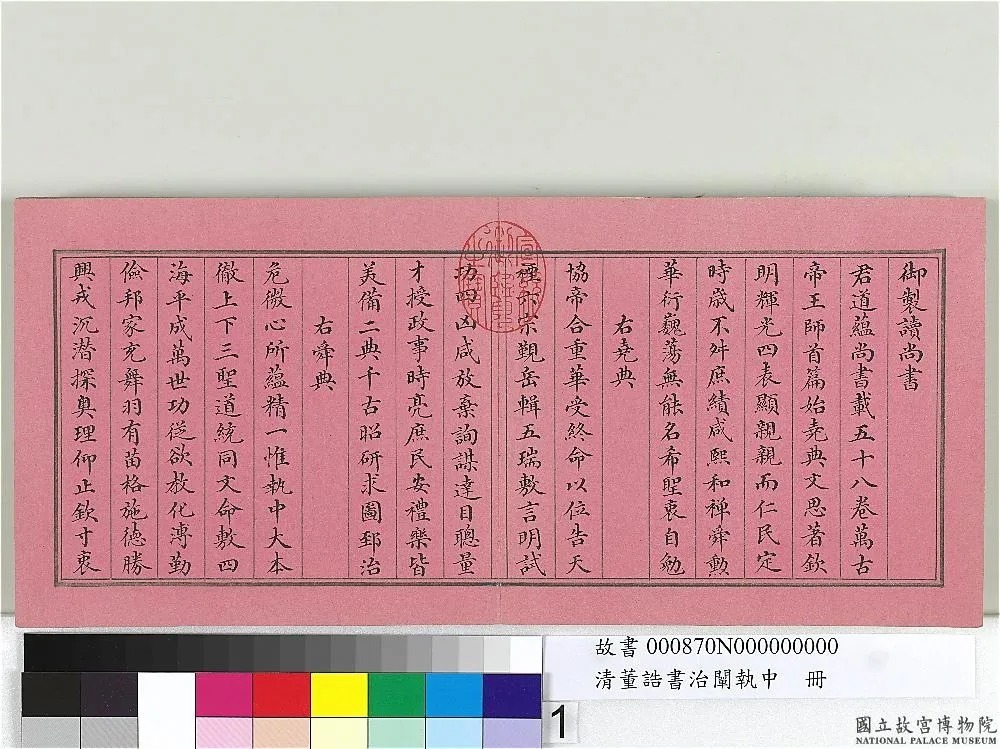 御製讀尚書
君道蘊尚書載五十八卷萬古
帝王師首篇始堯典文思著欽
明輝光四表顯親親而仁民定
時歲不舛庶績咸熙和禪舜勲
華衍巍蕩無能名希聖衷自勉
右堯典
協帝合重華受終命以位告天
禋郊宗覲岳輯五瑞敷言明試
功四凶咸放棄詢謀達目聰量
才授政事時亮庶民安禮樂皆
美備二典千古昭研求圖郅治
右舜典
危微心所蘊精一惟執中大本
徹上下三聖道統同文命敷四
海平成萬世功從欲敎化溥勤
儉邦家充舞羽有苗格施德勝
興戎沉潛探奥理仰止欽寸衷
故書 000870N000000000
清董誥書治闡執中 冊
1
國立故宮博物院
NATIONAL PALACE MUSEUM